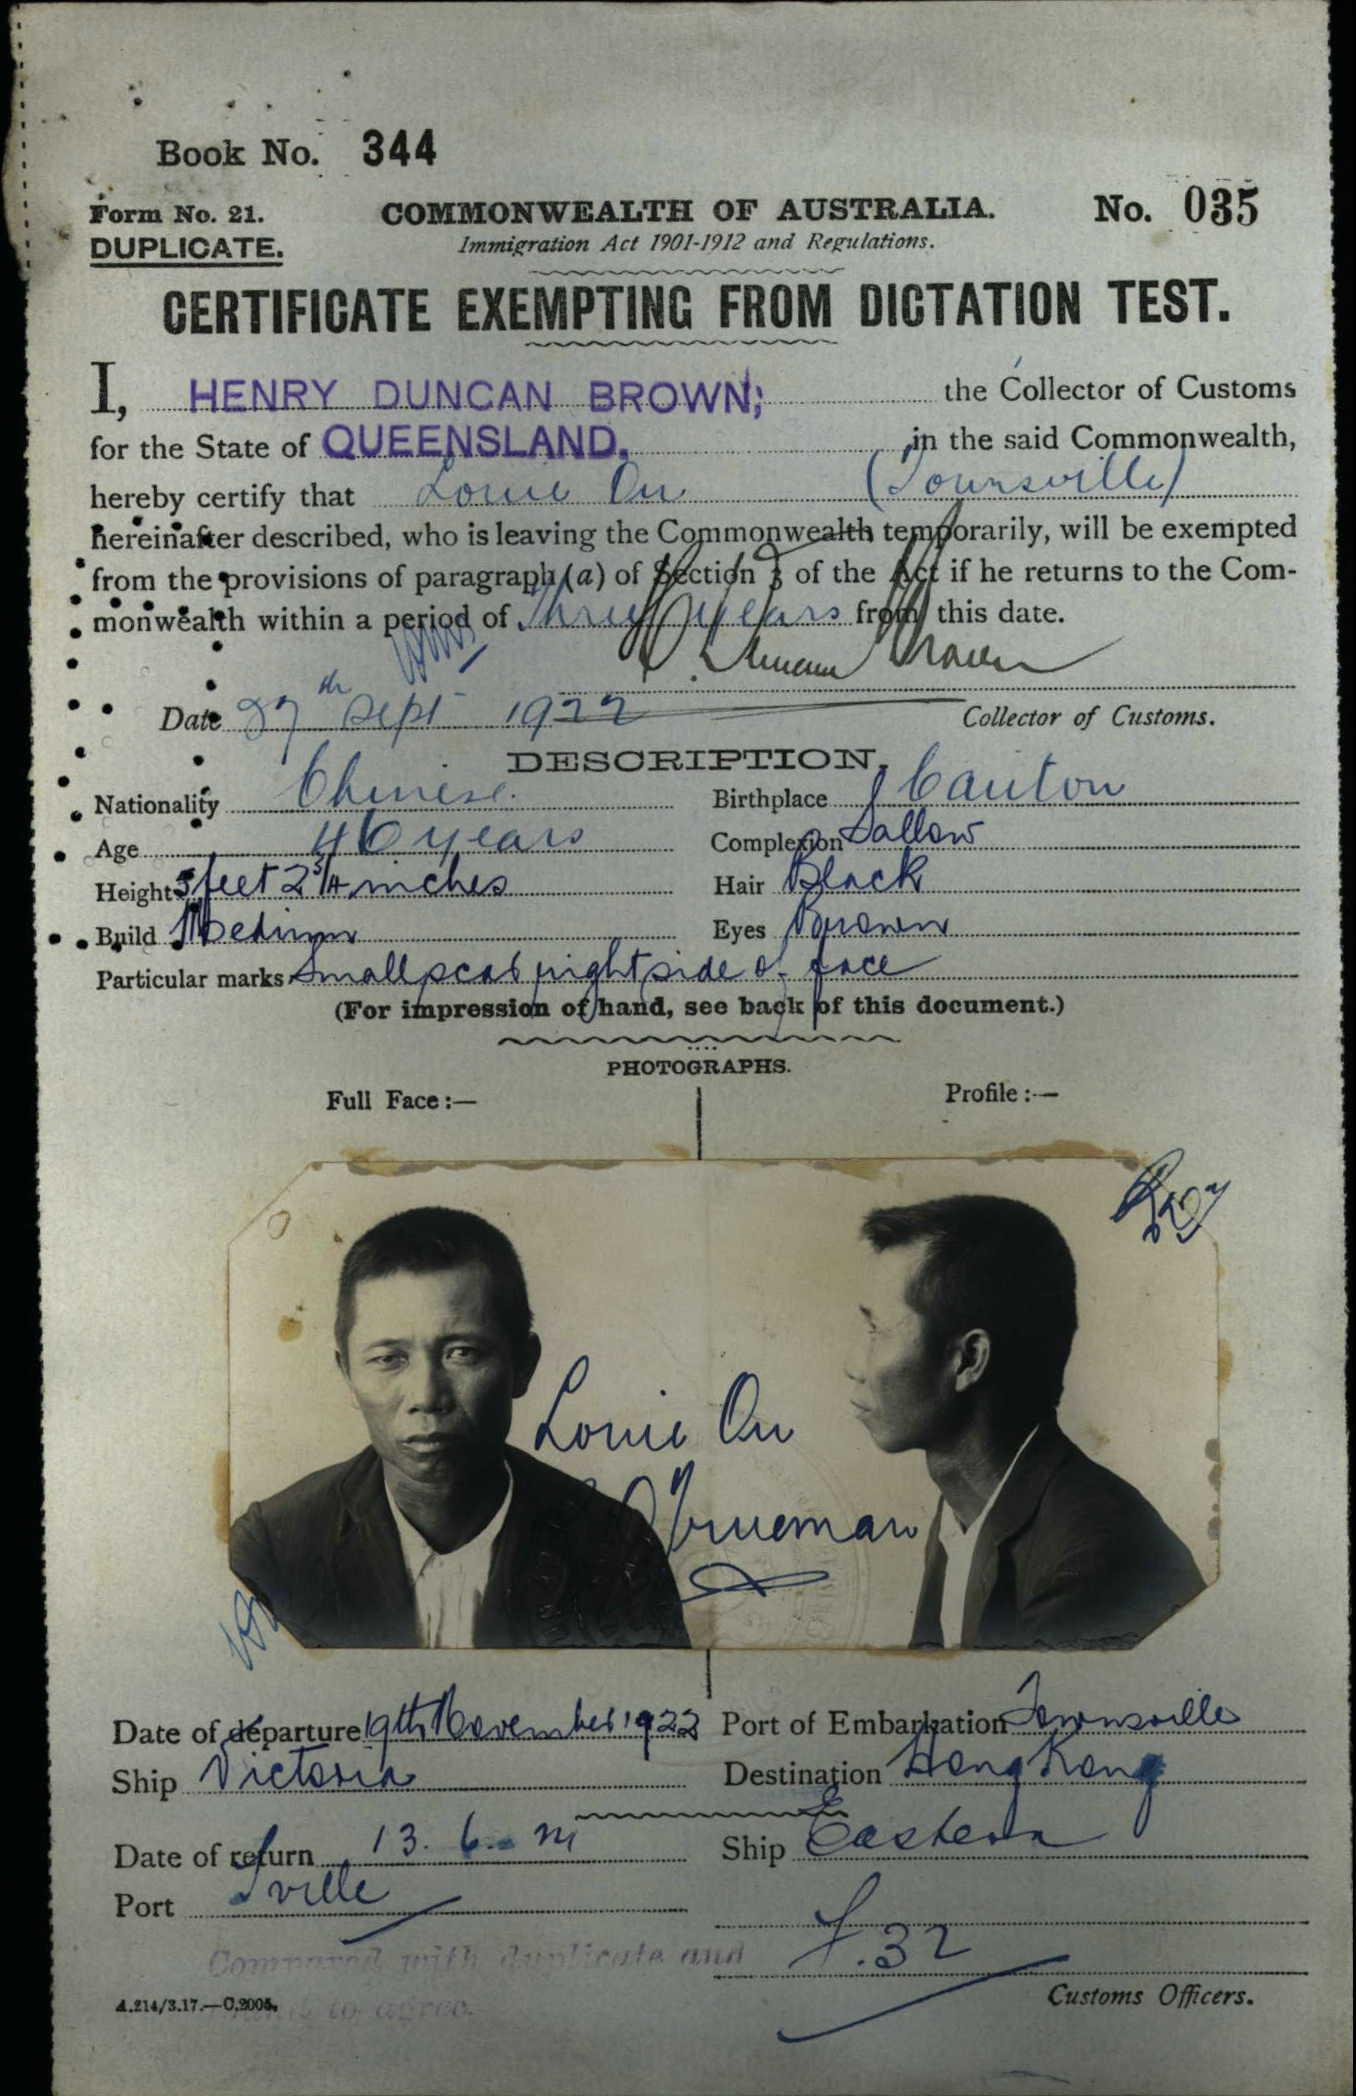 Book No. 344
Form No. 21.
COMMONWEALTH OF AUSTRALIA.
No. 035
DUPLICATE.
Immigration Act 1901-1912 and Regulations.
CERTIFICATE EXEMPTING FROM DICTATION TEST.
I, HENRY DUNCAN BROWN, the Collector of Customs
for the State of QUEENSLAND, in the said Commonwealth,
hereby certify that Louie On (Townsville)
hereinafter described, who is leaving the Commonwealth temporarily, will be exempted
from the provisions of paragraph (a) of Section 3 of the Act if he returns to the Com-
monwealth within a period of Three years from this date.
H. Duncan Brown
Date 27th Sept 1922
Collector of Customs.
DESCRIPTION.
Nationality Chinese.
Birthplace Canton
Age 46 years
Complexion Sallow
Height 5 feet 2 3/4 inches
Hair Black
Build Medium
Eyes Brown
Particular marks Small scar right side of face
(For impression of hand, see back of this document.)
PHOTOGRAPHS.
Full Face :—
Profile :—
Louie On
Trueman
Date of departure 19th November 1922
Port of Embarkation Townsville
Ship Victoria
Destination Hong Kong
Date of return 13. 6. 24
Ship Eastern
Port Tville
F.32
Compared with duplicate and
to agree.
Customs Officers.
A.214/3.17.—C.2005.